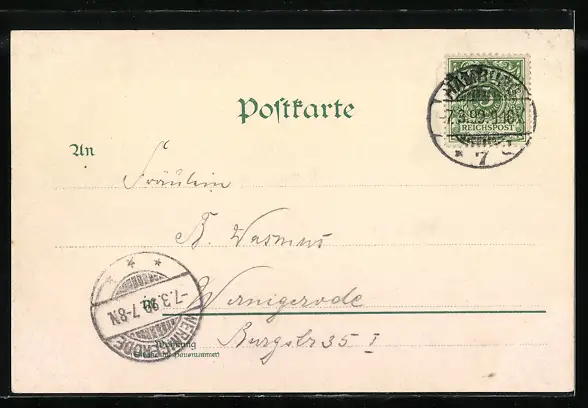 Postkarte
HAMBURG
7.3.99. 9-10V
REICHSPOST
* 7
An
Fräulein
B. Wasmus
in Wernigerode
WERNIGERODE
-7.3.99. 7-8N.
Burgstr 35 I
Wohnung